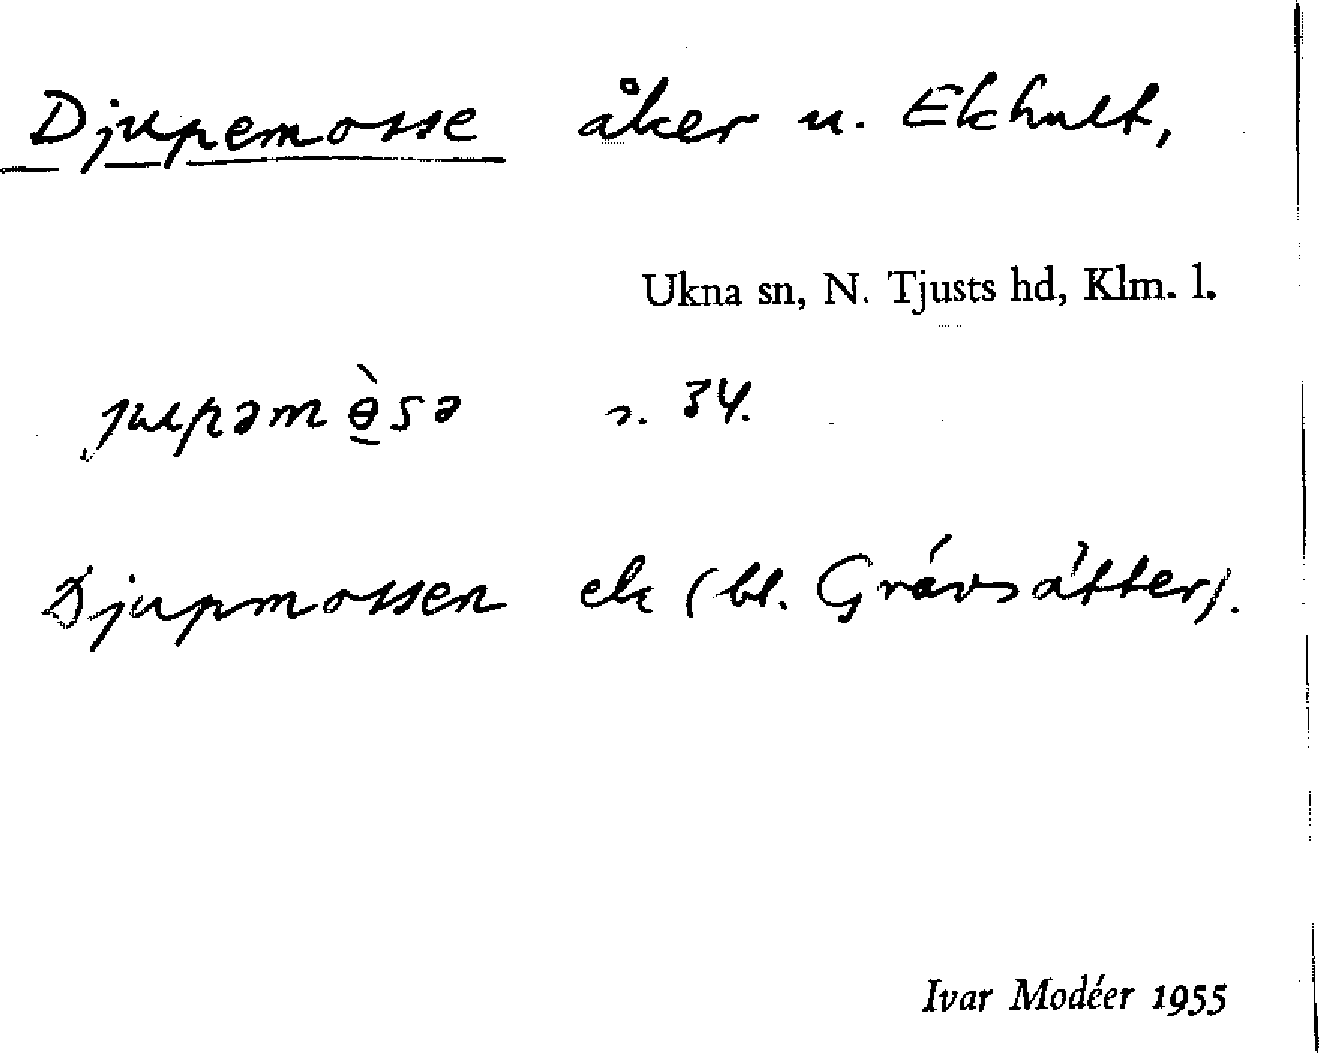 Djupemosse åker u. Ekhult,
Ukna sn, N. Tjusts hd, Klm. l.
ɟupəmɵ̠̀sə s. 34.
Djupmossen ek (bl. Grávsä́tter).
Ivar Modéer 1955